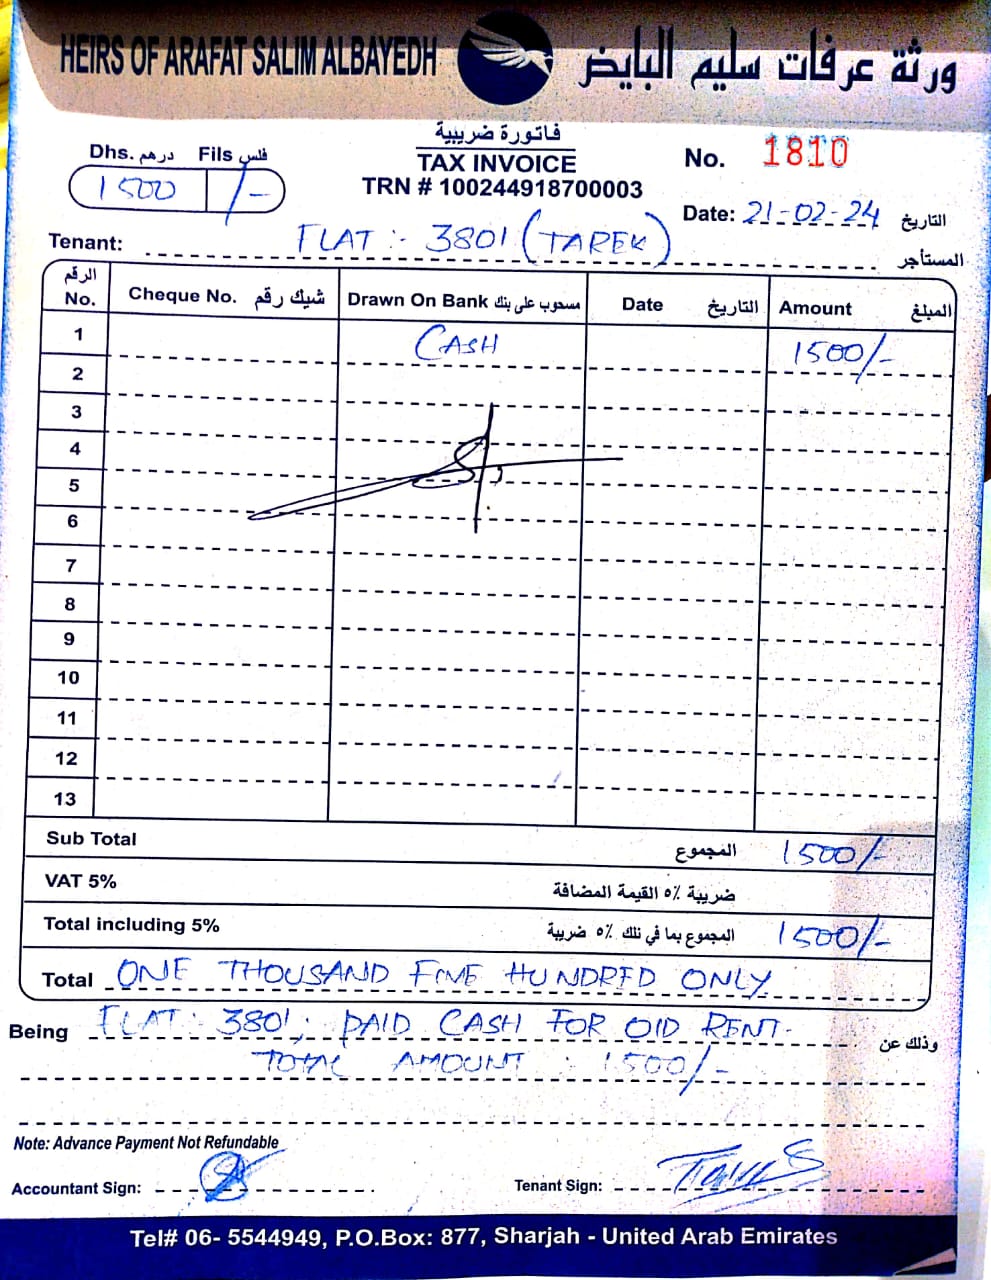 HEIRS OF ARAFAT SALIM ALBAYEDH ورثة عرفات سليم البايض
فاتورة ضريبية
Dhs. درهم Fils فلس TAX INVOICE No. 1810
1500 /- TRN # 100244918700003
Date: 21-02-24 التاريخ
Tenant: FLAT :- 3801 (TAREK) المستأجر
الرقم No. Cheque No. شيك رقم Drawn On Bank مسحوب على بنك Date التاريخ Amount المبلغ
1 CASH 1500/-
2
3
4
5
6
7
8
9
10
11
12
13
Sub Total المجموع 1500/-
VAT 5% ضريبة ٥٪ القيمة المضافة
Total including 5% المجموع بما في ذلك ٥٪ ضريبة 1500/-
Total ONE THOUSAND FIVE HUNDRED ONLY
Being FLAT : 3801; PAID CASH FOR OlD RENT- وذلك عن
TOTAL AMOUNT : 1500/-
Note: Advance Payment Not Refundable
Accountant Sign: Tenant Sign:
Tel# 06- 5544949, P.O.Box: 877, Sharjah - United Arab Emirates